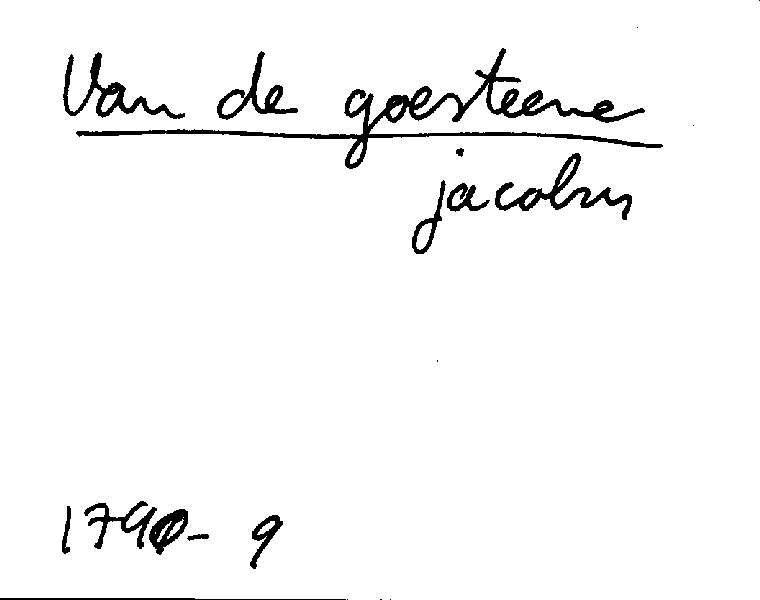 Van de goesteene
jacobus
1790- 9